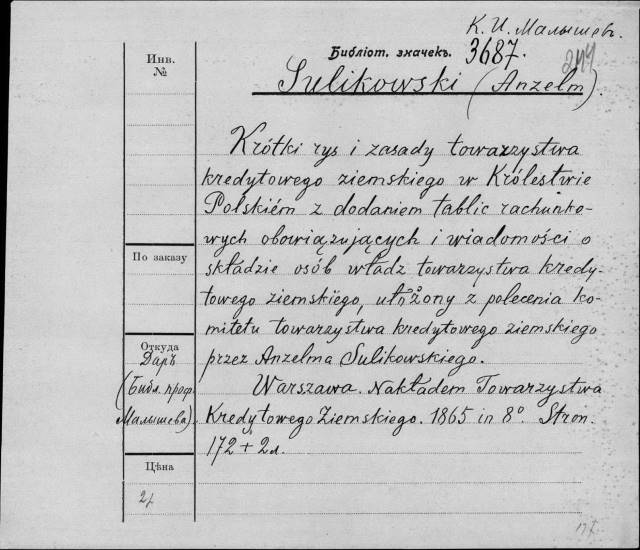 К. И. Малышевъ.
Инв.
№
Библіот. значекъ. 3687. 244
Sulikowski (Anzelm)
Krótki rys i zasady towarzystwa
kredytowego ziemskiego w Królestwie
Polskiém z dodaniem tablic rachunko-
wych obowiązujących i wiadomości o
składzie osób władz towarzystwa kredy-
towego ziemskiego, ułożony z polecenia ko-
mitetu towarzystwa kredytowego ziemskiego
przez Anzelma Sulikowskiego.
Warszawa. Nakładem Towarzystwa
Kredytowego Ziemskiego. 1865 in 8º. Stron.
172 + 2л.
По заказу
Откуда
Даръ
(Библ. проф.
Малышева)
Цѣна